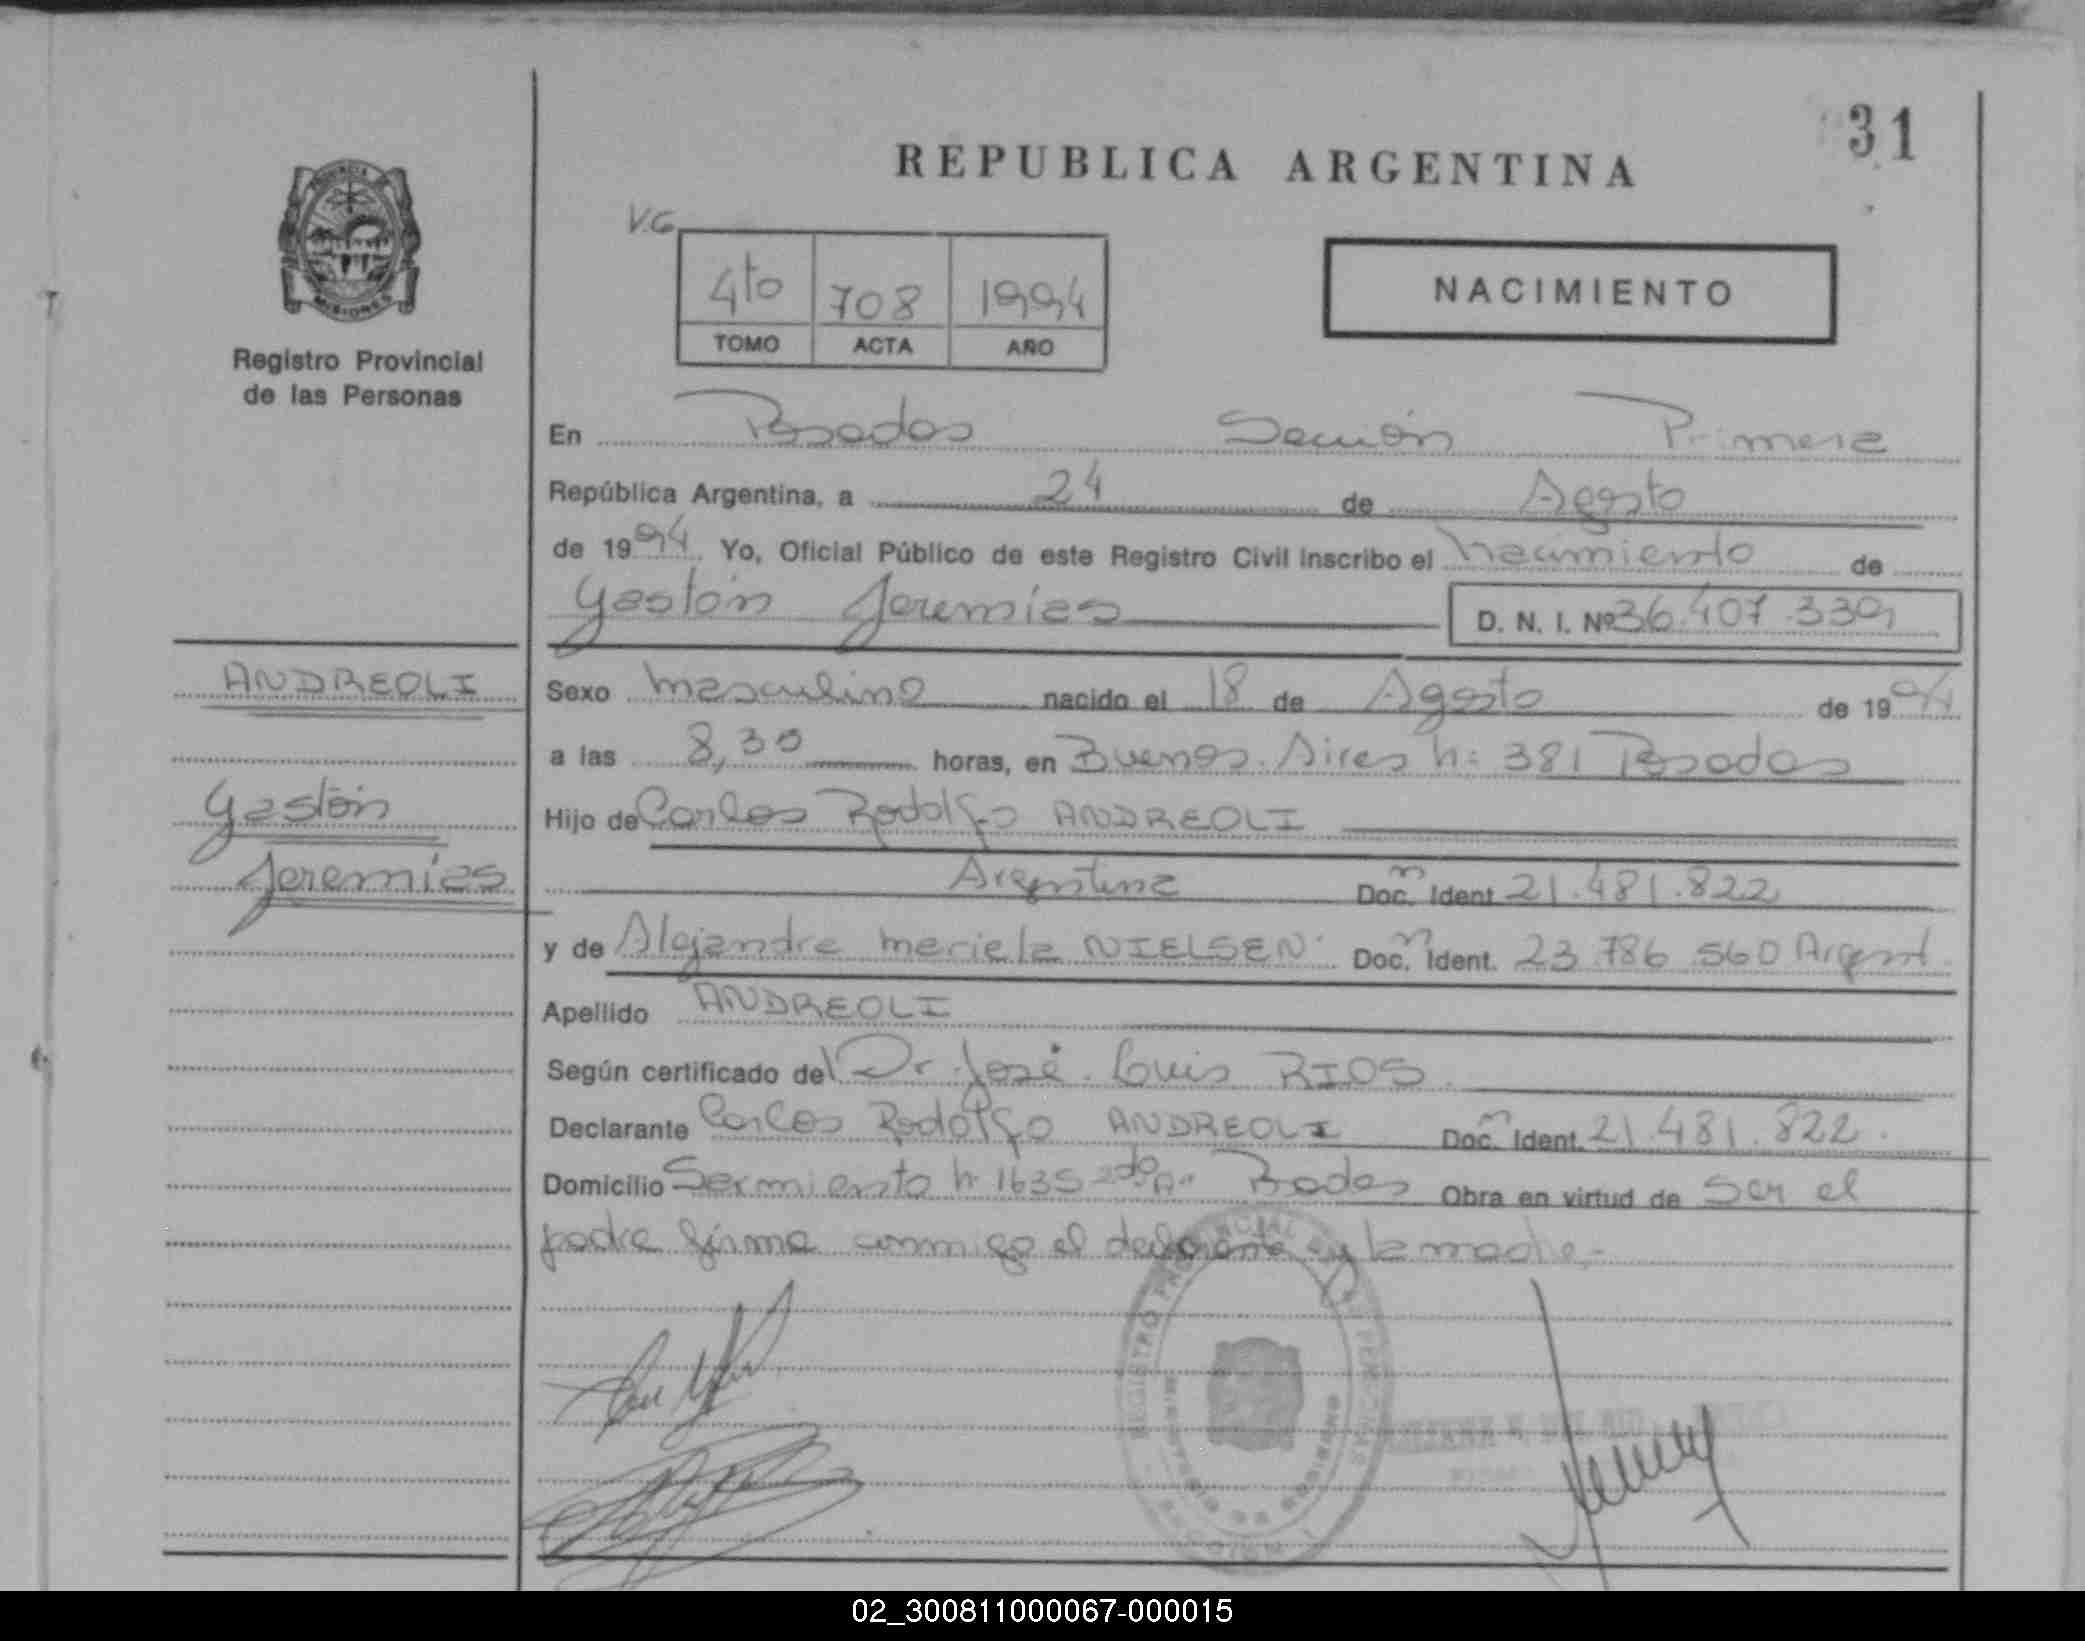 31
REPUBLICA ARGENTINA
V.G
4to 708 1994
TOMO ACTA AÑO
NACIMIENTO
PROVINCIA DE MISIONES
Registro Provincial
de las Personas
En Posadas Sección Primera
República Argentina, a 24 de Agosto
de 1994. Yo, Oficial Público de este Registro Civil Inscribo el nacimiento de
Gastón Jeremías D. N. I. Nº 36.407.339
ANDREOLI
Sexo masculino nacido el 18 de Agosto de 1994
a las 8,30 horas, en Buenos Aires n: 381 Posadas
Gastón
Hijo de Carlos Rodolfo ANDREOLI
Jeremías
Argentina Doc. Ident. 21.481.822
y de Alejandra Mariela NIELSEN Doc. Ident. 23.786.560 Argent.
Apellido ANDREOLI
Según certificado del Dr. José Luis RIOS
Declarante Carlos Rodolfo ANDREOLI Doc. Ident. 21.481.822.
Domicilio Sarmiento n. 1635 2do A" Posadas Obra en virtud de ser el
padre firma conmigo el declarante y la madre.-
REGISTRO PROVINCIAL DE LAS PERSONAS
02_300811000067-000015